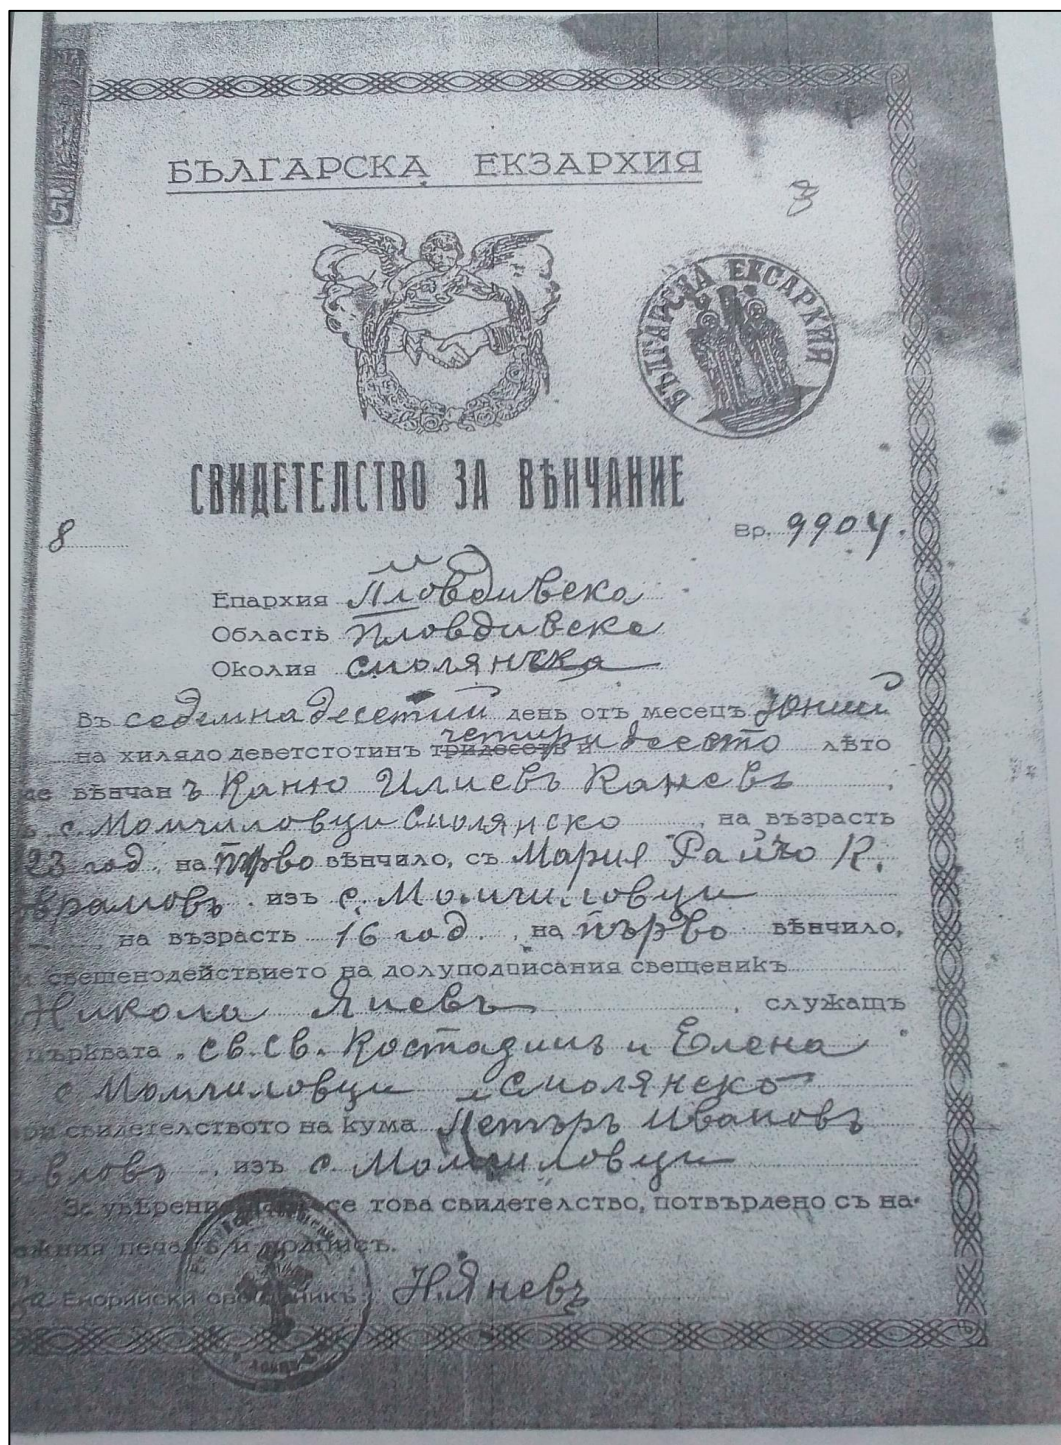 БЪЛГАРСКА ЕКЗАРХИЯ
3
БЪЛГАРСКА ЕКСАРХИЯ
СВИДЕТЕЛСТВО ЗА ВѢНЧАНИЕ
8
Вр. 9904.
Епархия Пловдивска
Область Пловдивска
Околия Смолянска
Въ седемнадесетий день отъ месецъ Юний
на хилядо деветстотинъ тридесеть и четиридесето лѣто
се вѣнчан ъ Каню Илиевъ Каневъ
с. Момчиловци Смолянско, на възрасть
23 год, на първо вѣнчило, съ Мария Райчо К.
Аврамовъ изъ с. Момчиловци
на възрасть 16 год, на първо вѣнчило,
свещенодействието на долуподписания свещеникъ
Никола Яневъ, служащъ
църквата „Св. Св. Костадинъ и Елена
с Момчиловци Смолянско
при свидетелството на кума Петъръ Ивановъ
изъ с. Момчиловци
За увѣрение се това свидетелство, потвърдено съ на-
печатъ и подписъ.
Енорийски свещеникъ: Н. Яневъ